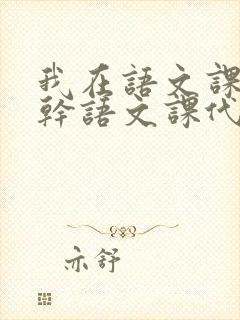 我在語文課
幹語文課代
亦舒